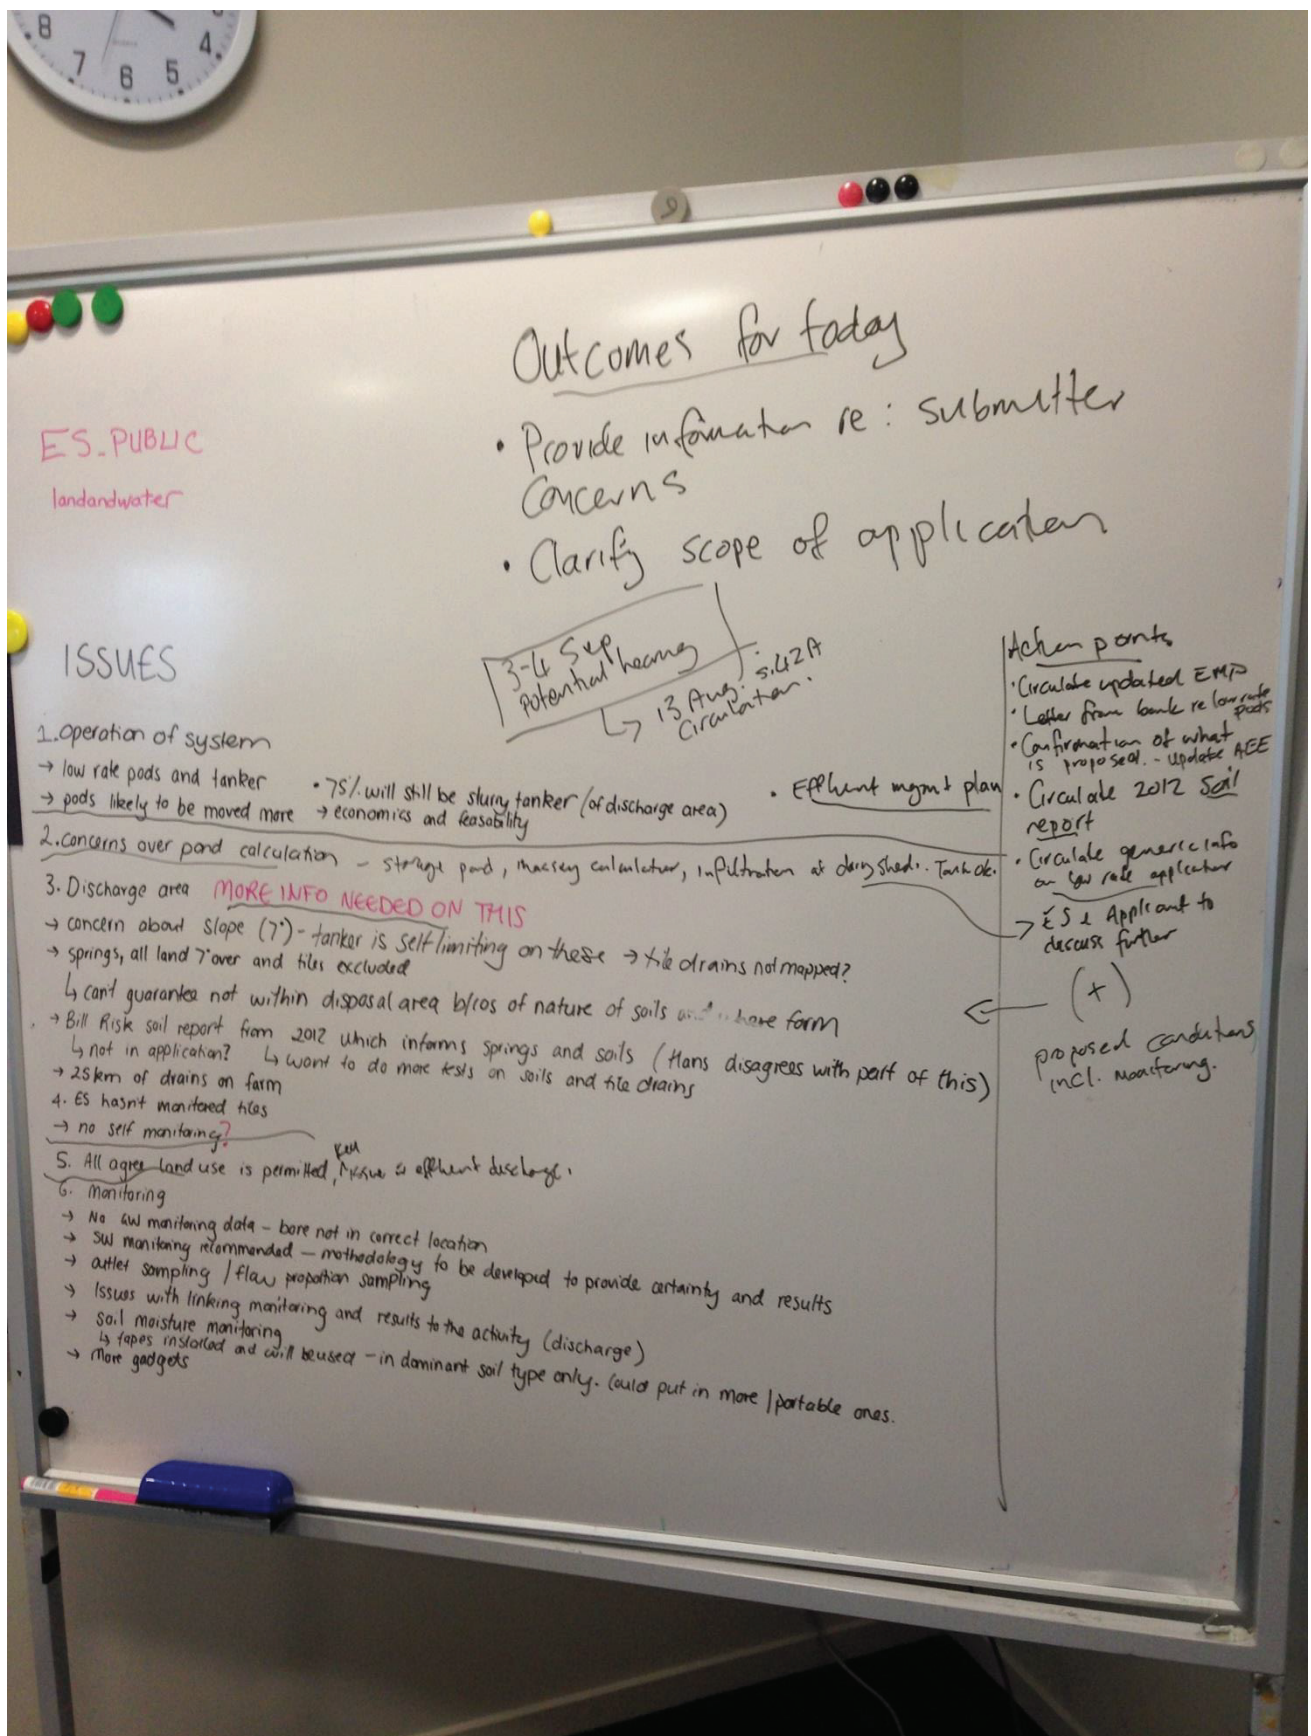 8
7
6
5
4
Outcomes for today
• Provide information re: submitter
concerns
• Clarify scope of application
ES_PUBLIC
landandwater
3-4 Sep
Potential hearing
↳ 13 Aug: s.42A
circulation.
ISSUES
1. Operation of system
→ low rate pods and tanker
→ pods likely to be moved more
• 75% will still be slurry tanker (of discharge area)
→ economics and feasability
• Effluent mgmt plan
2. concerns over pond calculation – storage pond, massey calculator, infiltration at dairy shed. Tank ok.
3. Discharge area MORE INFO NEEDED ON THIS
→ concern about slope (7°) – tanker is self limiting on these → tile drains not mapped?
→ springs, all land 7° over and tiles excluded
↳ can't guarantee not within disposal area b/cos of nature of soils and where farm
→ Bill Risk soil report from 2012 which informs springs and soils (Hans disagrees with part of this)
↳ not in application? ↳ want to do more tests on soils and tile drains
→ 25km of drains on farm
4. ES hasn't monitored tiles
→ no self monitoring?
5. All agree land use is permitted, key issue is effluent discharge.
6. Monitoring
→ No GW monitoring data – bore not in correct location
→ SW monitoring recommended – mothodology to be developed to provide certainty and results
→ outlet sampling / flow proportion sampling
→ Issues with linking monitoring and results to the activity (discharge)
→ soil moisture monitoring
↳ tapes installed and will be used – in dominant soil type only. Could put in more / portable ones.
→ More gadgets
Action points
• Circulate updated EMP
• Letter from bank re low rate
pods
• Confirmation of what
is proposed. – update AEE
• Circulate 2012 Soil
report
• Circulate generic info
on low rate application
→ ES & Applicant to
discuss further
← (+)
proposed conditions
incl. monitoring.